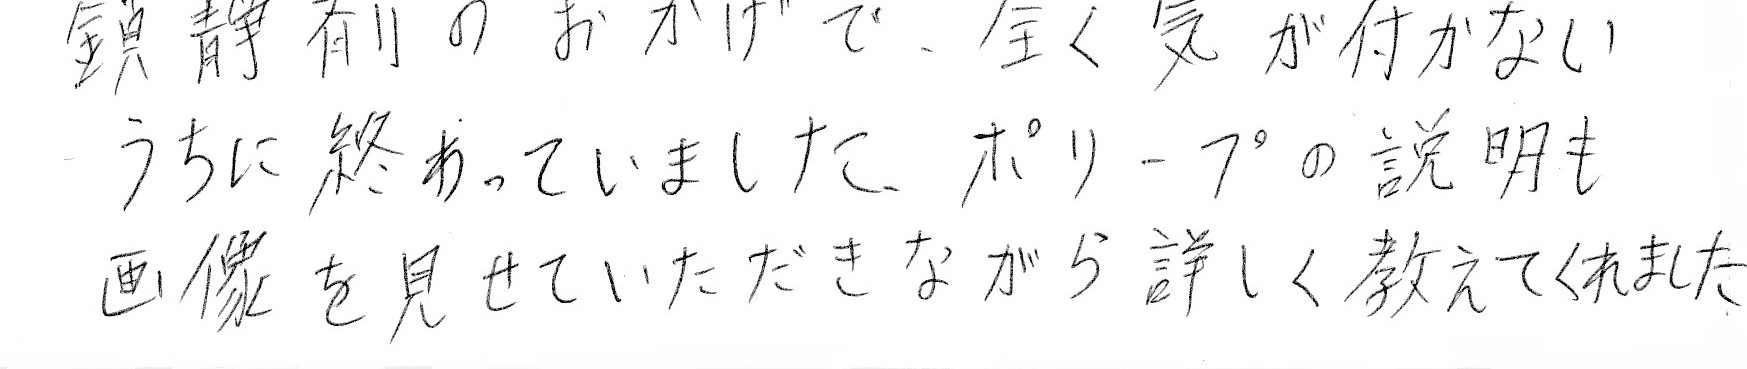 鎮静剤のおかげで、全く気が付かない
うちに終わっていました。ポリープの説明も
画像を見せていただきながら詳しく教えてくれました